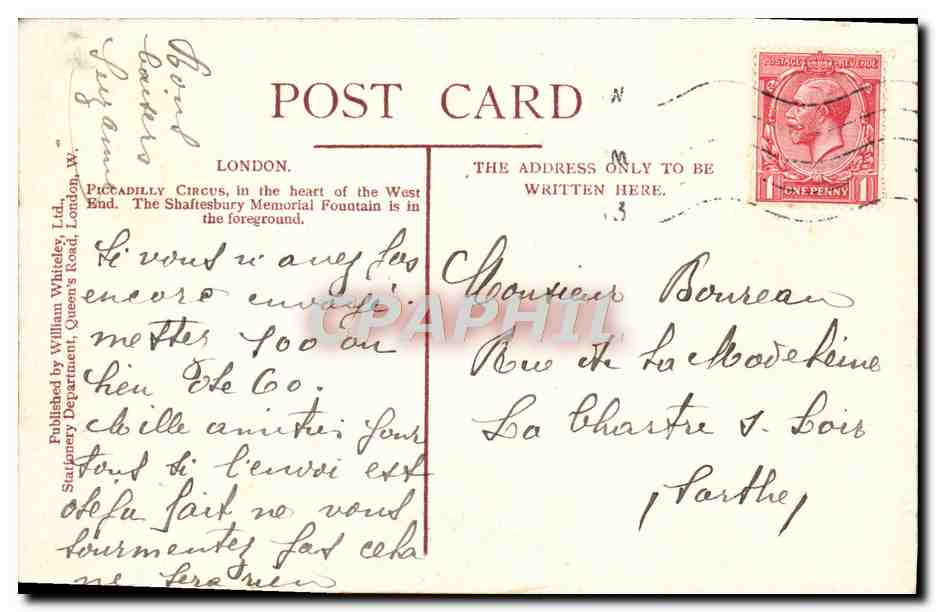 Bons
baisers
Suzanne
POST CARD
LONDON.
PICCADILLY CIRCUS, in the heart of the West
End. The Shaftesbury Memorial Fountain is in
the foreground.
THE ADDRESS ONLY TO BE
WRITTEN HERE.
POSTAGE REVENUE
1 ONE PENNY 1
Published by William Whiteley, Ltd.,
Stationery Department, Queen's Road, London, W.
Si vous n'avez pas
encore envoyé.
mettez 100 au
lieu de 60.
Mille amitiés pour
tous si l'envoi est
déjà fait ne vous
tourmentez pas cela
ne sera rien
Monsieur Boureau
Rue de La Madeleine
La Chartre s. Loir
(Sarthe)
CPAPHIL